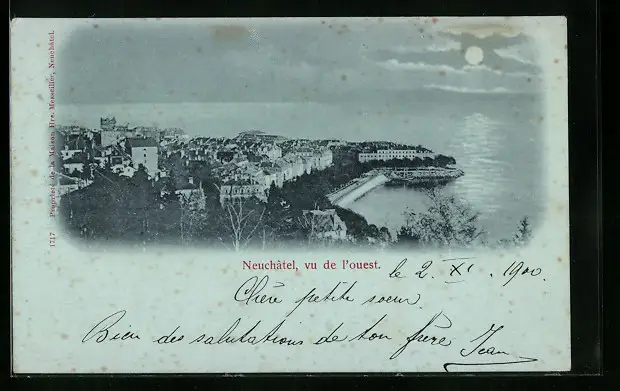 1517 Propriété de la Maison Hre. Messeiller, Neuchâtel.
Neuchâtel, vu de l'ouest.
le 2. XI. 1900.
Chère petite soeur,
Bien des salutations de ton frère Jean